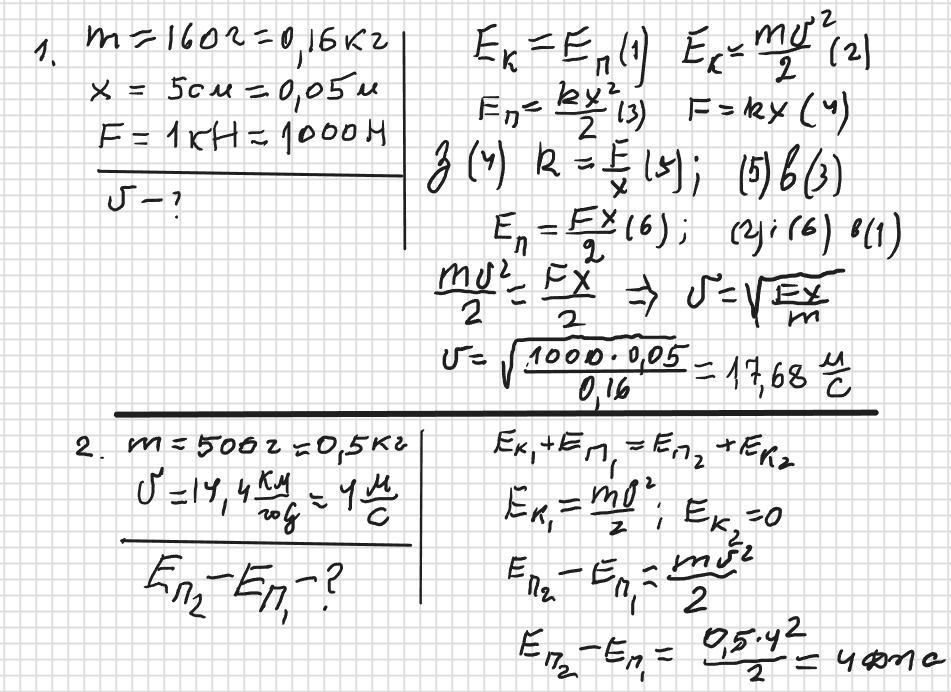 1. m = 160г = 0,16кг
x = 5см = 0,05м
F = 1кН = 1000Н
υ - ?
Eк = Eп (1) Eк = mυ²/2 (2)
Eп = kx²/2 (3) F = kx (4)
З (4) k = F/x (5); (5) в (3)
Eп = Fx/2 (6); (2) і (6) в (1)
mυ²/2 = Fx/2 ⇒ υ = √(Fx/m)
υ = √(1000·0,05/0,16) = 17,68 м/с
2. m = 500г = 0,5кг
υ = 14,4 км/год = 4 м/с
Eп₂ - Eп₁ - ?
Eк₁ + Eп₁ = Eп₂ + Eк₂
Eк₁ = mυ²/2; Eк₂ = 0
Eп₂ - Eп₁ = mυ²/2
Eп₂ - Eп₁ = 0,5·4²/2 = 4